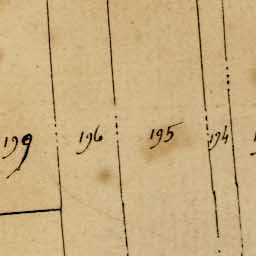 199 196 195 194